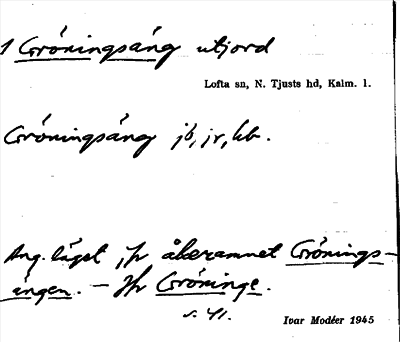 1 Gröningsäng utjord
Lofta sn, N. Tjusts hd, Kalm. l.
Gröningsäng jb, jr, kb.
Ang. läget, jfr åkeramnet Grönings-
ängen. — Jfr Gröninge.
s. 41.
Ivar Modéer 1945